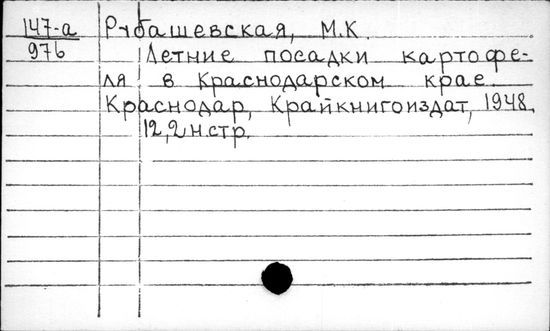 147-а Рубашевская, М.К.
976 Летние посадки картофе-
ля в Краснодарском крае.
Краснодар, Крайкнигоиздат, 1948.
12,2 н.стр.